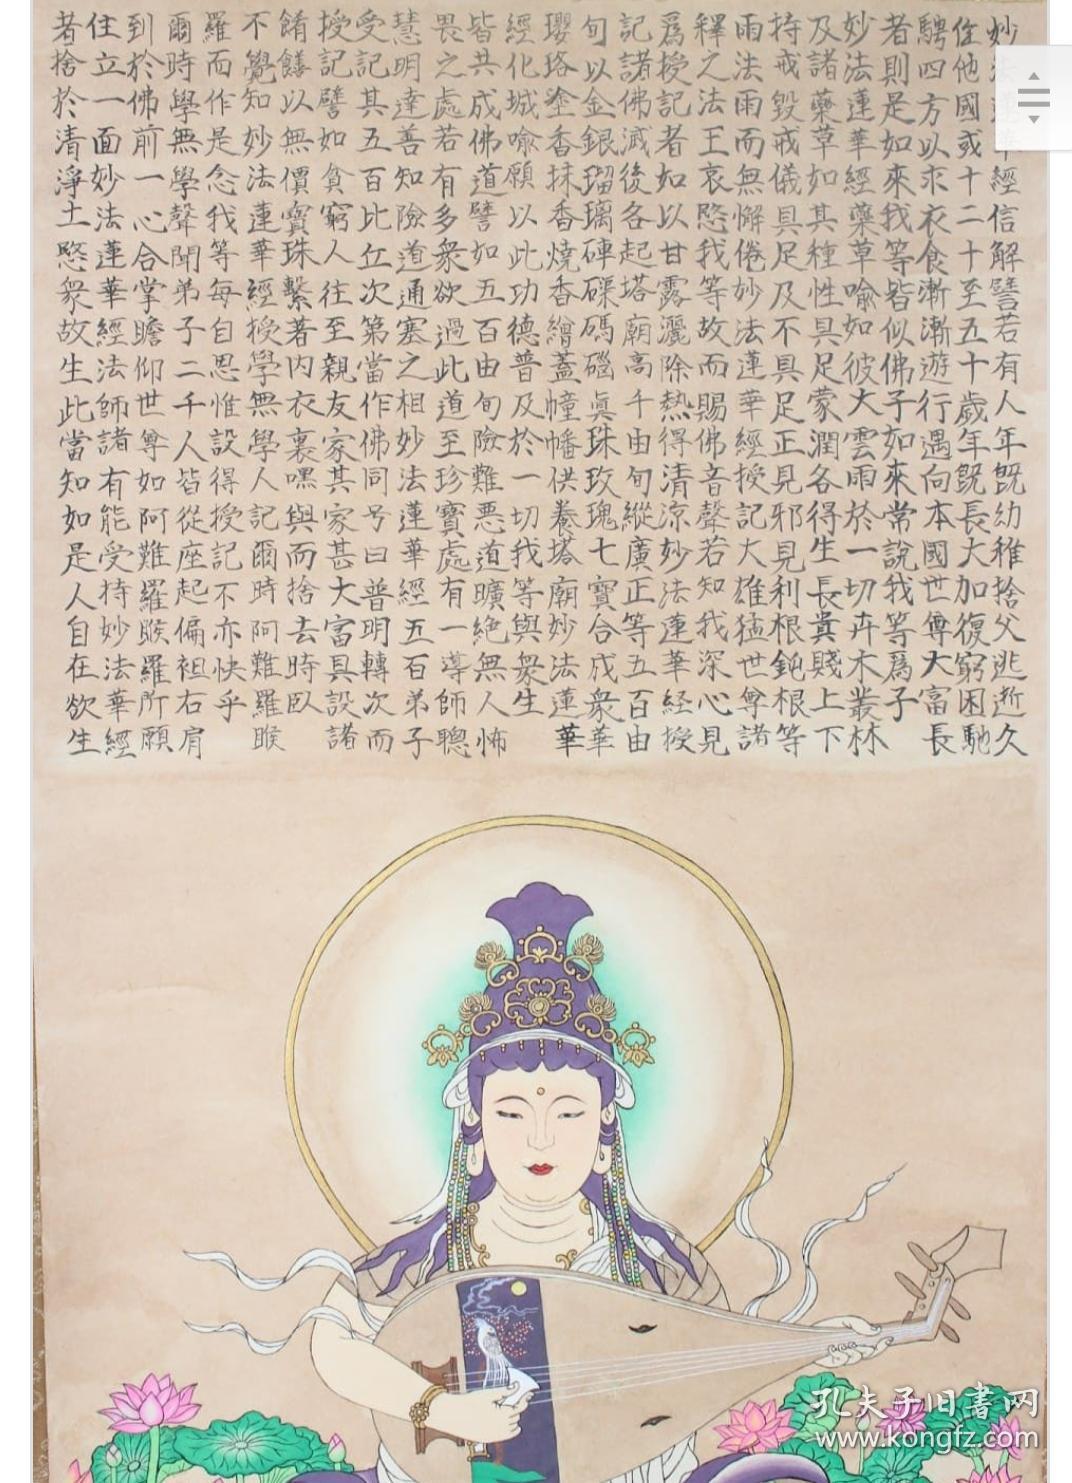 妙法蓮華經信解譬若有人年既幼稚捨父逃逝久
住他國或十二十至五十歲年既長大加復窮困馳
騁四方以求衣食漸漸遊行遇向本國世尊大富長
者則是如來我等皆似佛子如來常說我等爲子
妙法蓮華經藥草喻如彼大雲雨於一切卉木叢林
及諸藥草如其種性具足蒙潤各得生長貴賤上下
持戒毀戒儀具足及不具足正見邪見利根鈍根等
雨法雨而無懈倦妙法蓮華經授記大雄猛世尊諸
釋之法王哀愍我等故而賜佛音聲若知我深心見
爲授記者如以甘露灑除熱得清凉妙法蓮華経授
記諸佛滅後各起塔廟高千由旬縱廣正等五百由
旬以金銀瑠璃硨磲碼磁眞珠玫瑰七寶合成衆華
瓔珞塗香抹香燒香繒蓋幢幡供養塔廟妙法蓮華
經化城喻願以此功德普及於一切我等與衆生
皆共成佛道譬如五百由旬險難悪道曠絶無人怖
畏之處若有多衆欲過此道至珍寶處有一導師聰
慧明達善知險道通塞之相妙法蓮華經五百弟子
受記其五百比丘次第當作佛同号曰普明轉次而
授記譬如貧窮人往至親友家其家甚大富具設諸
餚饍以無價寶珠繫著内衣裏嘿與而捨去時臥
不覺知妙法蓮華經授學無學人記爾時阿難羅睺
羅而作是念我等每自思惟設得授記不亦快乎
爾時學無學聲聞弟子二千人皆從座起偏袒右肩
到於佛前一心合掌瞻仰世尊如阿難羅睺羅所願
住立一面妙法蓮華經法師諸有能受持妙法華經
者捨於清淨土愍衆故生此當知如是人自在欲生
孔夫子旧書网
www.kongfz.com